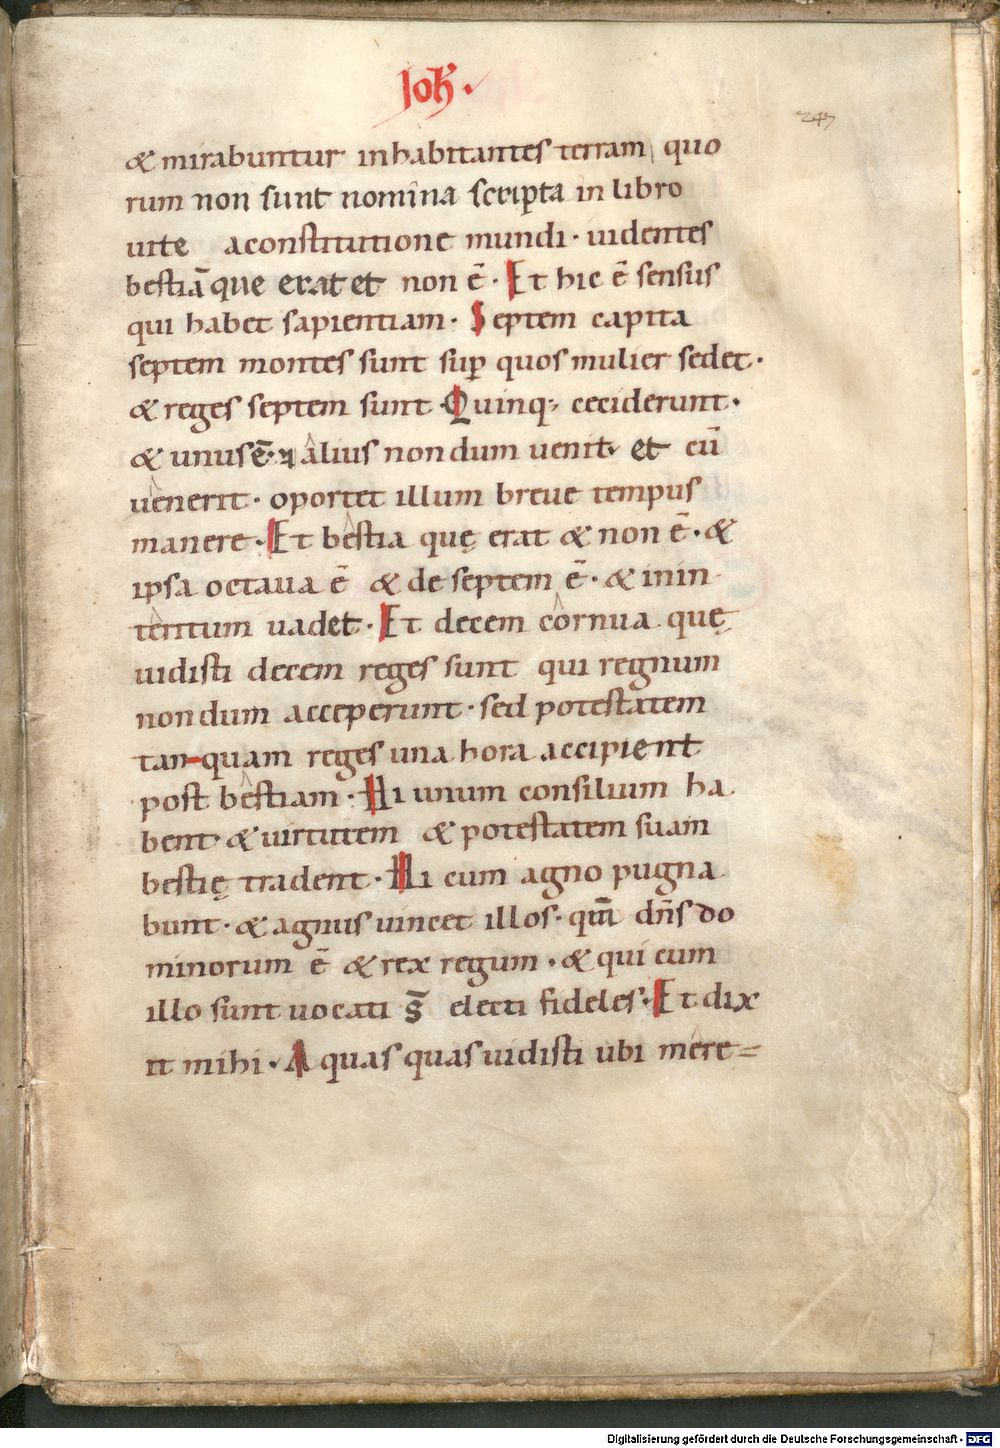 Joh̄.
247
& mirabuntur inhabitantes terram quo
rum non sunt nomina scripta in libro
uite aconstitutione mundi · uidentes
bestiā que erat et non ē · Et hic ē sensus
qui habet sapientiam · Septem capita
septem montes sunt sup̄ quos mulier sedet ·
& reges septem sunt · Quinq; ceciderunt ·
& unus ē · alius nondum uenit · et cū
uenerit · oportet illum breue tempus
manere · Et bestia quę erat & non ē · &
ipsa octaua ē & de septem ē · & inin
teritum uadet · Et decem cornua quę
uidisti decem reges sunt qui regnum
nondum acceperunt · sed potestatem
tan-quam reges una hora accipient
post bestiam · Hi unum consilium ha
bent & uirtutem & potestatem suam
bestię tradent · Hi cum agno pugna
bunt · & agnus uincet illos · qm̄ dn̄s do
minorum ē & rex regum · & qui cum
illo sunt uocati electi fideles · Et dix
it mihi · Aquas quas uidisti ubi mere=
Digitalisierung gefördert durch die Deutsche Forschungsgemeinschaft - DFG